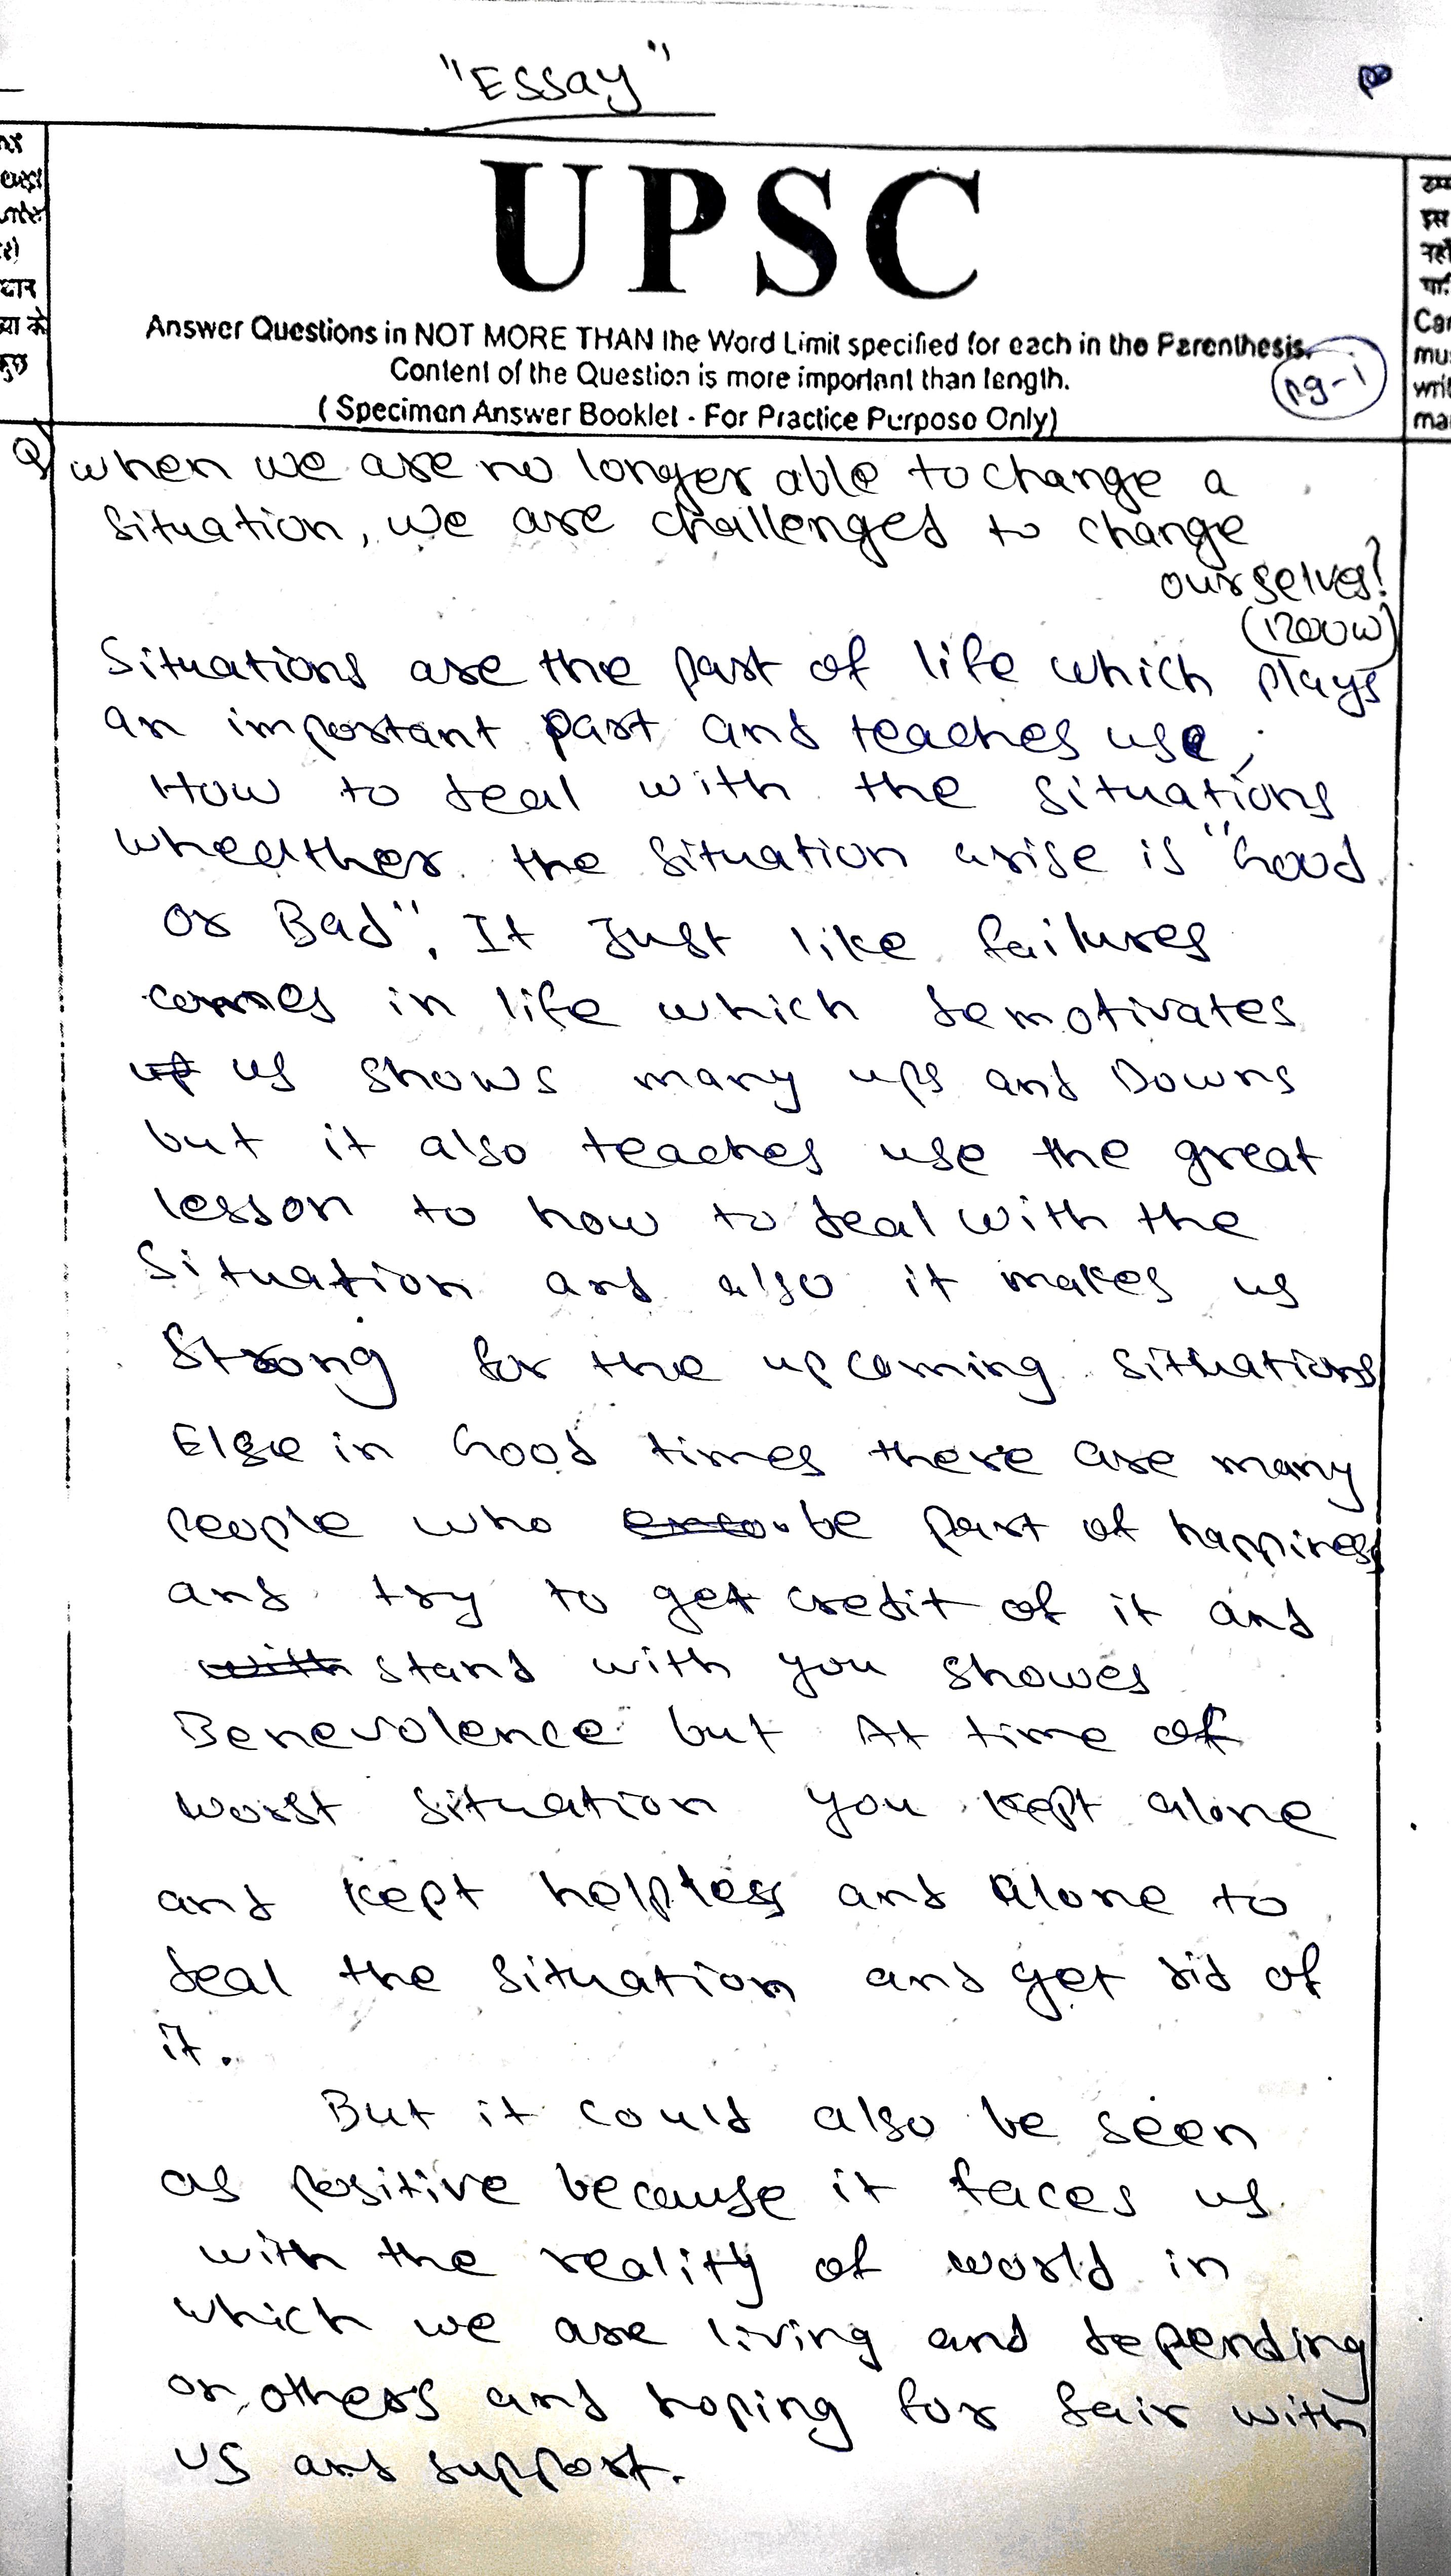 "Essay"
UPSC
Answer Questions in NOT MORE THAN the Word Limit specified for each in the Parenthesis.
Content of the Question is more important than length.
(Specimen Answer Booklet - For Practice Purpose Only)
pg-1
Q) when we are no longer able to change a
situation, we are challenged to change
ourselves?
(1200w)
Situations are the part of life which plays
an important part and teaches use,
How to deal with the situations
wheather the situation arise is "Good
or Bad", It Just like failures
comes in life which demotivates
us shows many ups and Downs
but it also teaches use the great
lesson to how to deal with the
Situation and also it makes us
Strong for the upcoming situations
Else in Good times there are many
people who be part of happiness
and try to get credit of it and
stand with you showes
Benevolence but At time of
worst situation you kept alone
and kept helpless and alone to
deal the situation and get rid of
it.
But it could also be seen
as positive because it faces us
with the reality of world in
which we are living and depending
on others and hoping for fair with
us and support.